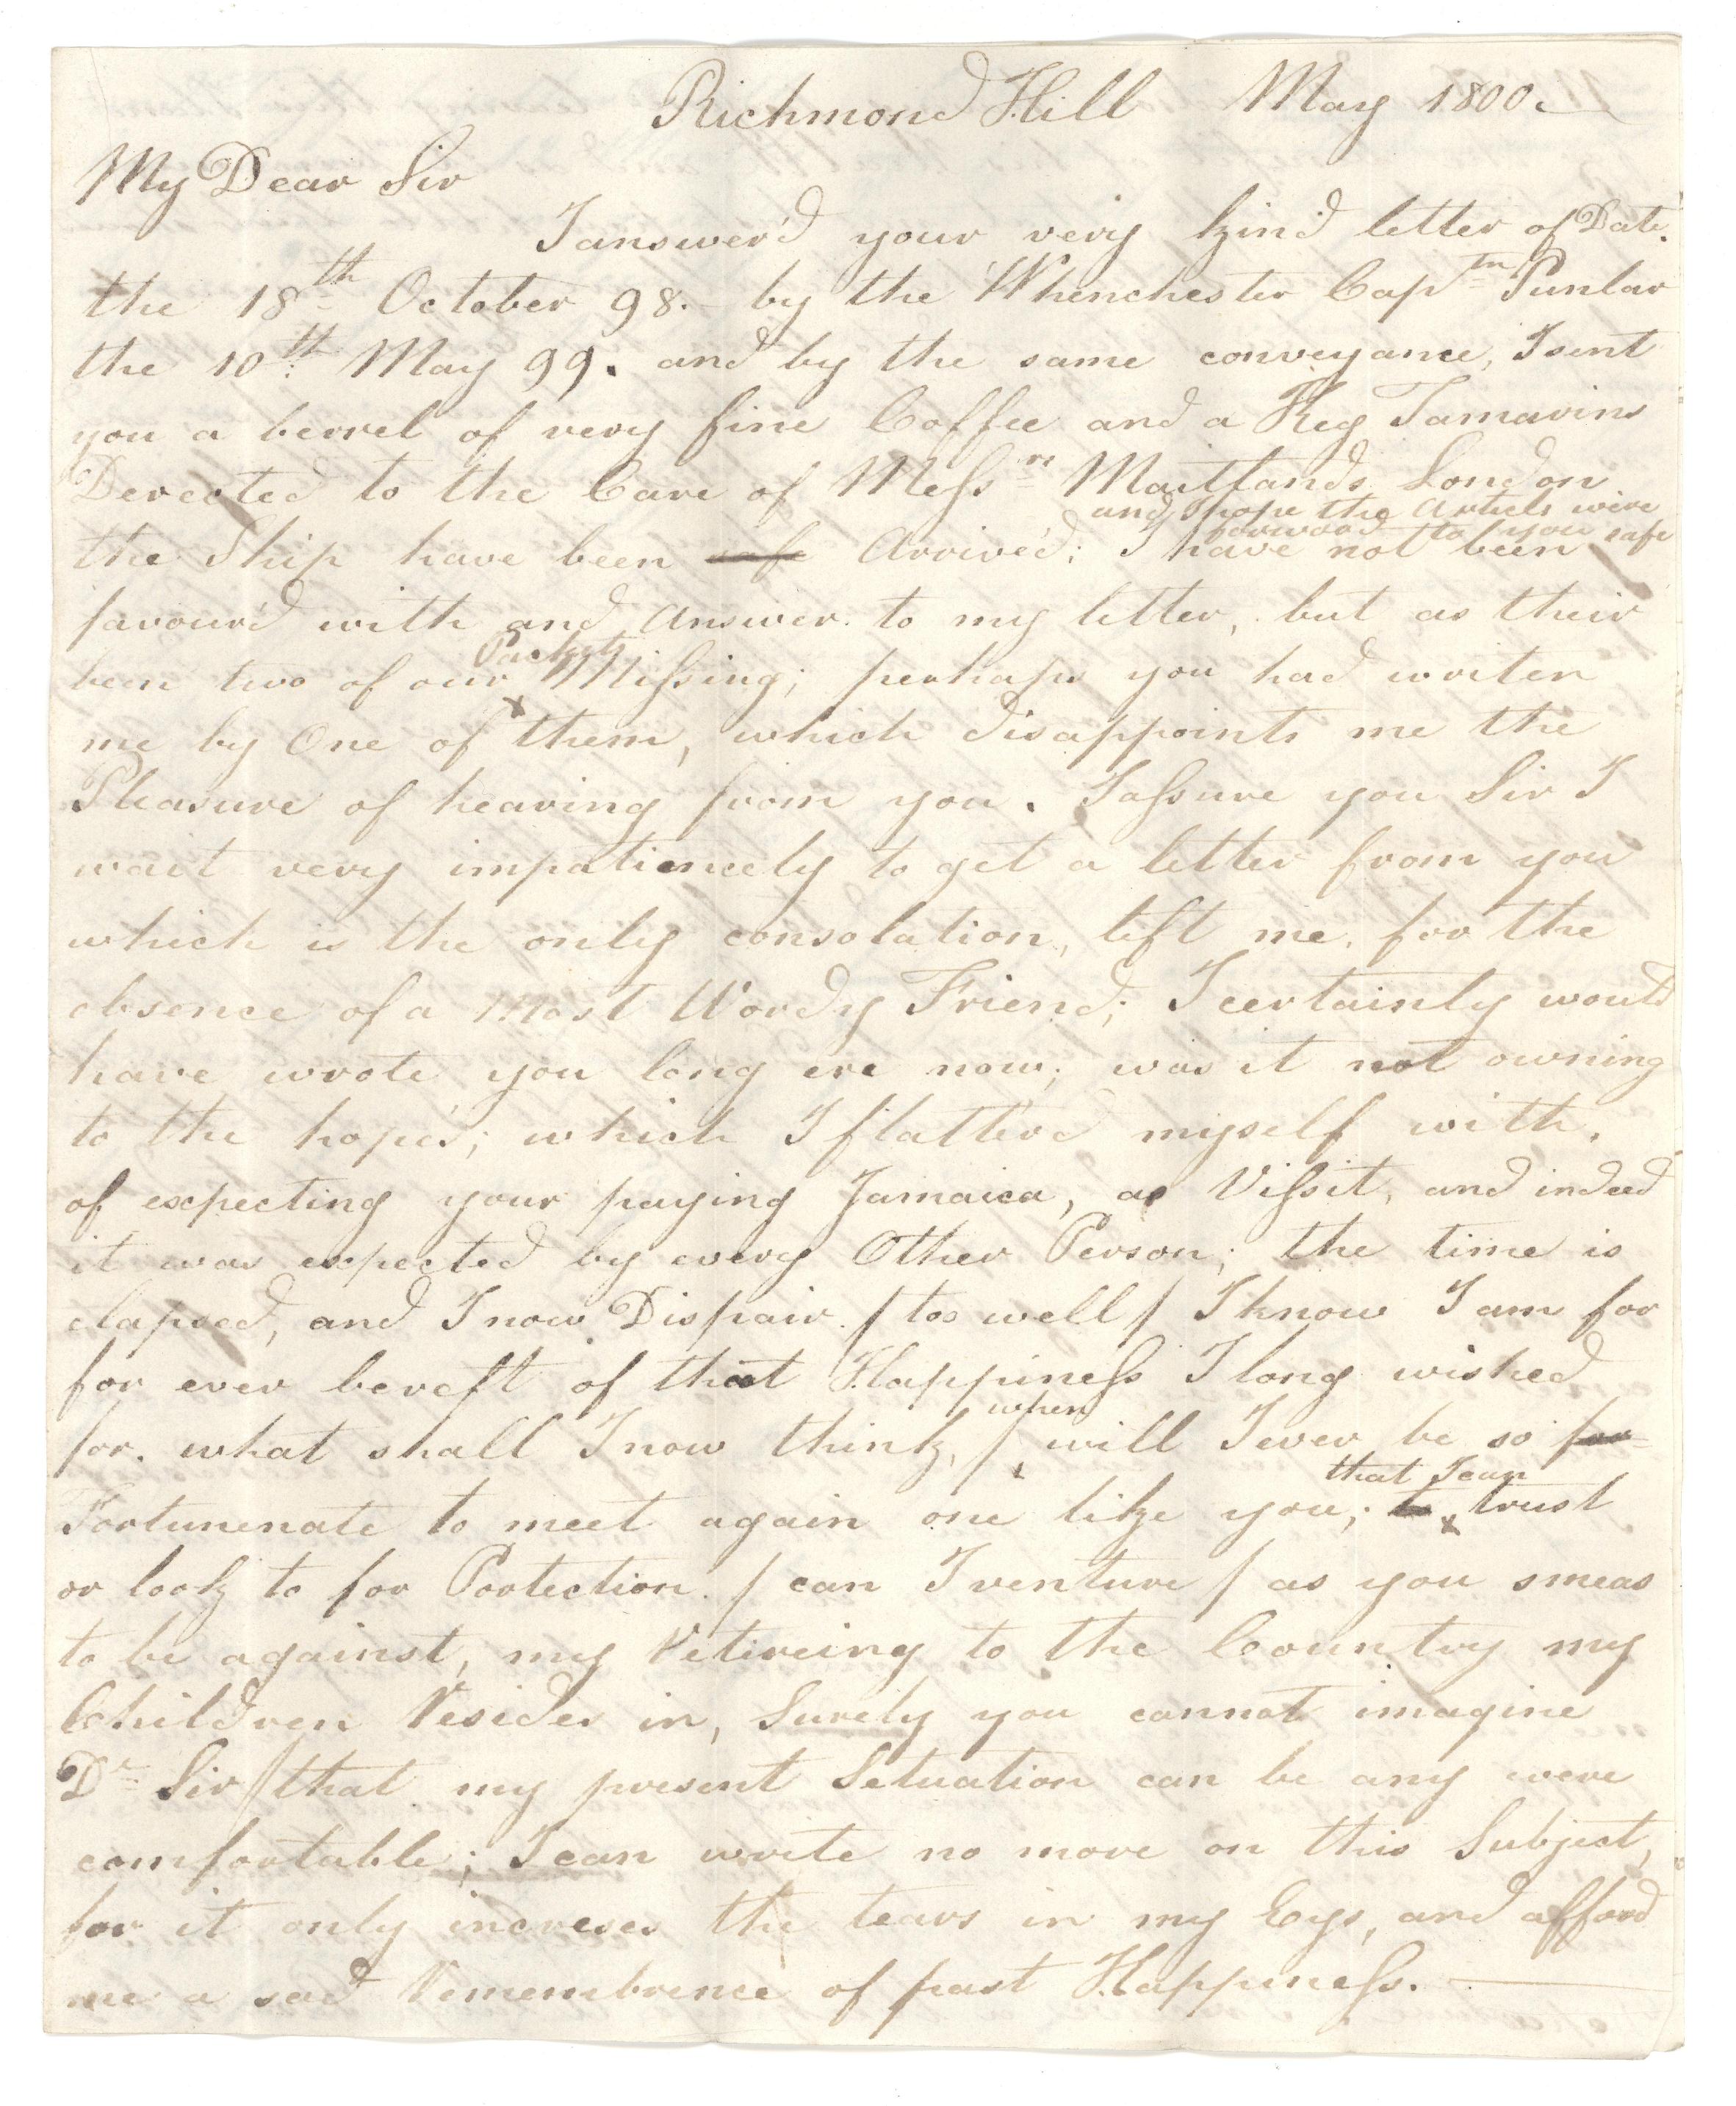 Richmond Hill May 1800.
My Dear Sir
I answer'd your very kind letter of Date.
the 18th October 98. by the Whenchester Captn Punlar
the 10th May 99. and by the same conveyance, I sent
you a berrel of very fine Coffee and a Keg Tamarins
Derected to the Care of Messrs Maitlands London
and hope the Artiels were
forward to you safe
the Ship have been safe Arrived; I have not been
favour'd with and answer to my letter, but as their
Packets
been two of our Missing; perhaps you had writen
me by One of them, which disappoints me the
Pleasure of hearing from you. I assure you Sir I
wait very impatiencely to get a letter from you
which is the only consolation, left me, for the
absence of a Most Wordy Friend; I certainly would
have wrote you long ere now; was it not owning
to the hopes; which I flatterd myself with,
of expecting your paying Jamaica, as Vissit, and indeed
it was expected by every Other Person; the time is
elapsed, and I now Dispair. / too well / I know I am for
for ever bereft of that Happiness I long wished
when
for. what shall I now think, / will I ever be so for
that I can
Fortunenate to meet again one like you; to x trust
or look to for Portection. / can I venture / as you smeas
to be against, my Retireing to the Country my
Children Resides in, Surely you cannot imagine
Dr Sir / that my present Setuation can be any were
comfortable; I can write no more on this Subject,
for it only increses the tears in my Eys, and afford
me a sad Remembrence of past Happiness.